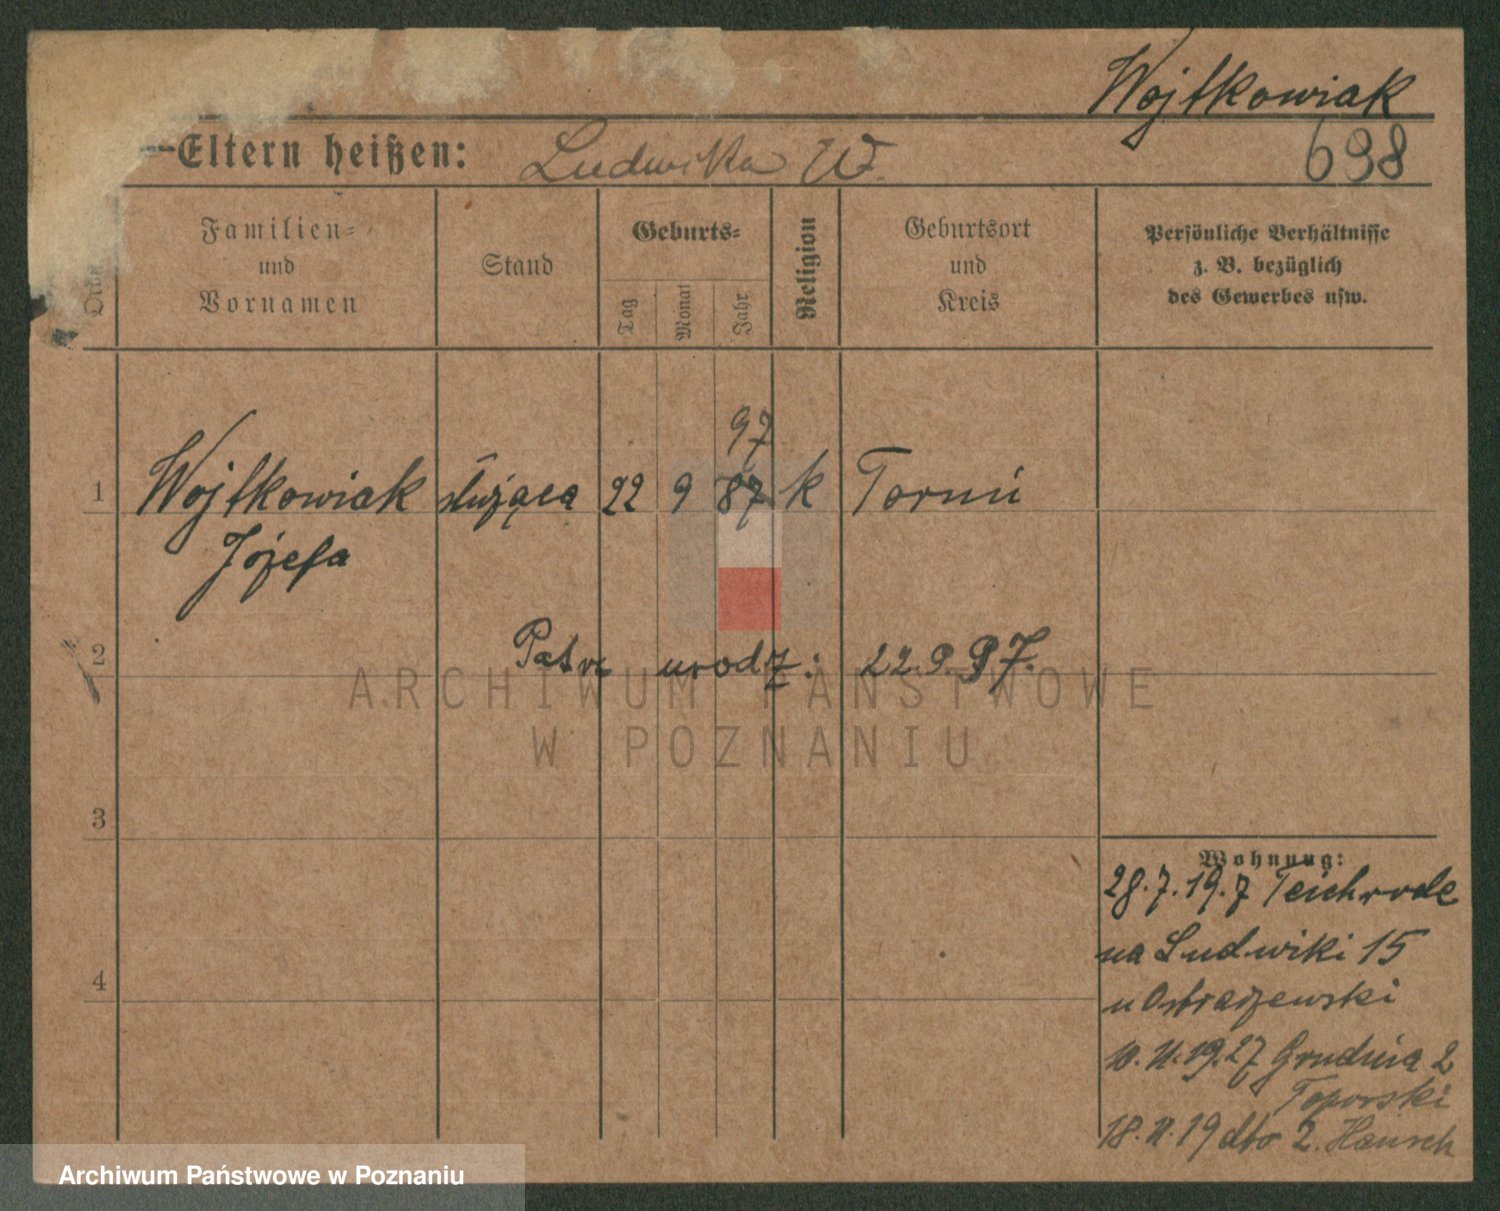 Wojtkowiak
Eltern heißen: Ludwika W.
698
Familien= und Vornamen
Stand
Geburts=
Tag
Monat
Jahr
Religion
Geburtsort und Kreis
Persönliche Verhältnisse
z. B. bezüglich
des Gewerbes usw.
97
1 Wojtkowiak służąca 22 9 87 k Toruń
Józefa
2 Patrz urodz: 22.9.97.
ARCHIWUM PAŃSTWOWE
W POZNANIU
3
4
Wohnung:
28.7.19.7 Teichrode
na Ludwiki 15
u
19.27 Grudnia 2
Toporski
18. 19 dto 2.
Archiwum Państwowe w Poznaniu